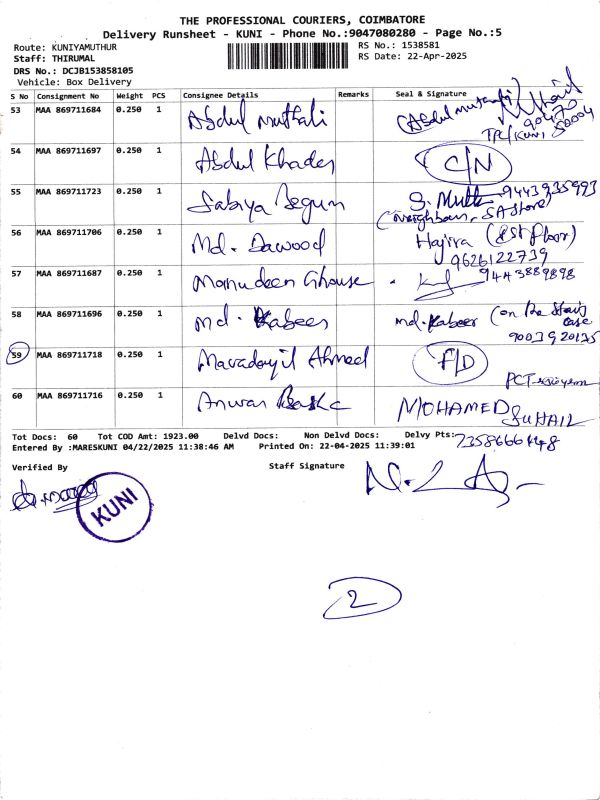 THE PROFESSIONAL COURIERS, COIMBATORE
Delivery Runsheet - KUNI - Phone No.:9047080280 - Page No.:5
Route: KUNIYAMUTHUR
RS No.: 1538581
Staff: THIRUMAL
RS Date: 22-Apr-2025
DRS No.: DCJB153858105
Vehicle: Box Delivery
S No Consignment No Weight PCS Consignee Details Remarks Seal & Signature
53 MAA 869711684 0.250 1 Abdul Muthali
90470
50004
TPC/KUNI
54 MAA 869711697 0.250 1 Abdul Khader C/N
55 MAA 869711723 0.250 1 Sabiya Begum S. Muthu 9443935993
(neighbour, SA Store)
56 MAA 869711706 0.250 1 Md. Dawood Hajira (1st floor)
9626122739
57 MAA 869711687 0.250 1 Monudeen Ghouse 9443889898
58 MAA 869711696 0.250 1 Md. Kabeer md. Kabeer (on the Stair
case
9003920175
59 MAA 869711718 0.250 1 Ahmed F/D
60 MAA 869711716 0.250 1 Anwar MOHAMED
SUHAIL
7358666448
Tot Docs: 60 Tot COD Amt: 1923.00 Delvd Docs: Non Delvd Docs: Delvy Pts:
Entered By :MARESKUNI 04/22/2025 11:38:46 AM Printed On: 22-04-2025 11:39:01
Verified By
Staff Signature
KUNI
2